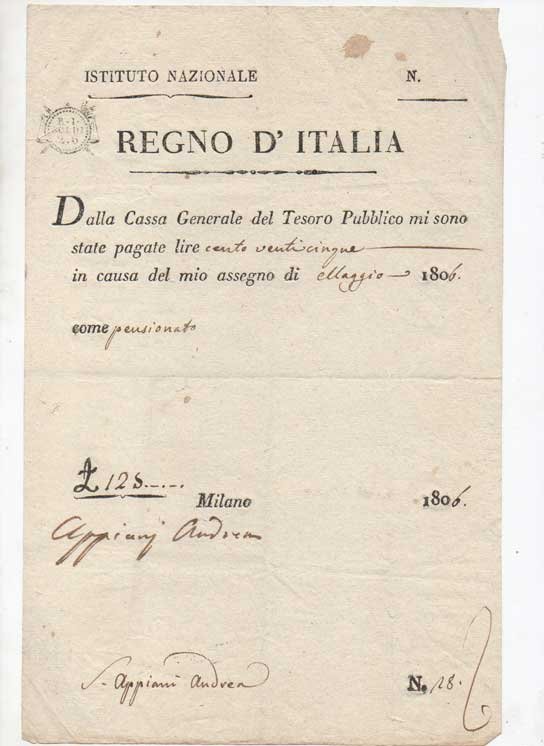 ISTITUTO NAZIONALE N.
R. I.
SOLDI
REGNO D' ITALIA
Dalla Cassa Generale del Tesoro Pubblico mi sono
state pagate lire cento venticinque
in causa del mio assegno di Maggio 1806.
come pensionato
£ 125.-.-.
Milano 1806.
Appiani Andrea
S. Appiani Andrea N. 28.